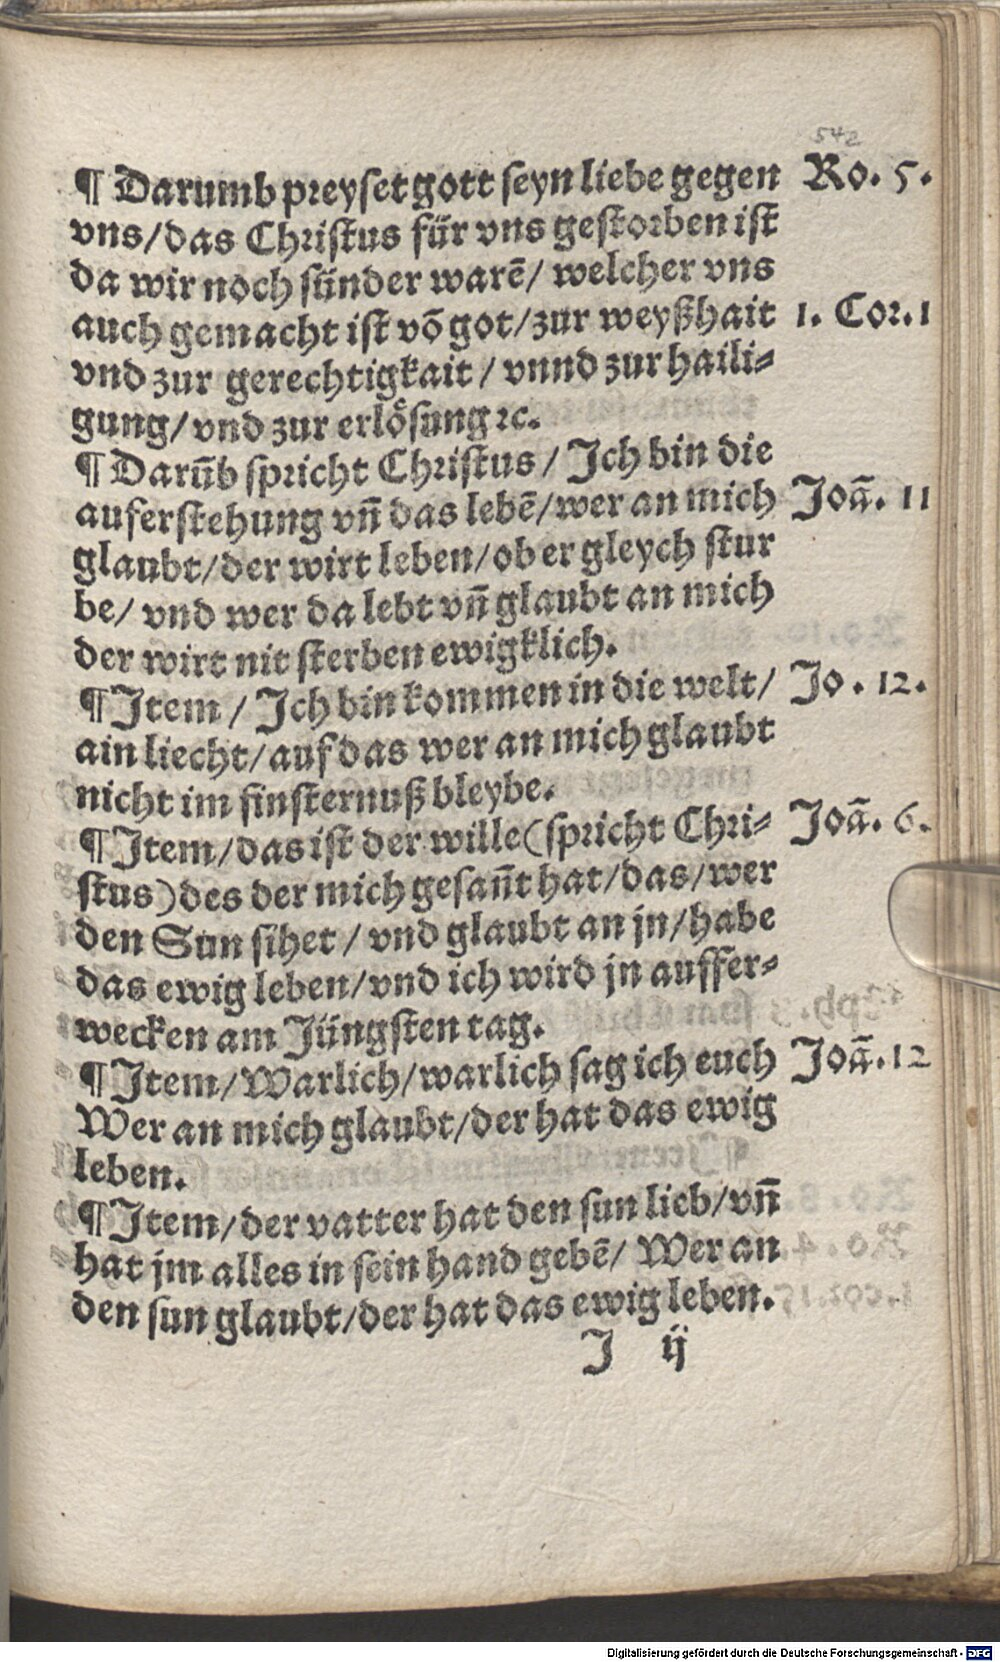 542
¶ Darumb preyset gott seyn liebe gegen Ro. 5.
vns/das Christus für vns gestorben ist
da wir noch sünder warē/ welcher vns
auch gemacht ist vō got/zur weyßhait 1. Cor. 1
vnd zur gerechtigkait / vnnd zur haili⸗
gung/vnd zur erlösung ꝛc.
¶ Darūb spricht Christus / Ich bin die
auferstehung vn̄ das lebē/wer an mich Joā. 11
glaubt/der wirt leben/ob er gleych stur
be/ vnd wer da lebt vn̄ glaubt an mich
der wirt nit sterben ewigklich.
¶ Item / Ich bin kommen in die welt/ Jo. 12.
ain liecht/auf das wer an mich glaubt
nicht im finsternuß bleybe.
¶ Item/das ist der wille(spricht Chri⸗ Joā. 6.
stus)des der mich gesan̄t hat/das/wer
den Sun sihet / vnd glaubt an jn/habe
das ewig leben/vnd ich wird jn auffer⸗
wecken am Jüngsten tag.
¶ Item/Warlich/warlich sag ich euch Joā. 12
Wer an mich glaubt/der hat das ewig
leben.
¶ Item/der vatter hat den sun lieb/vn̄
hat jm alles in sein hand gebē/ Wer an
den sun glaubt/der hat das ewig leben.
J ij
Digitalisierung gefördert durch die Deutsche Forschungsgemeinschaft - DFG